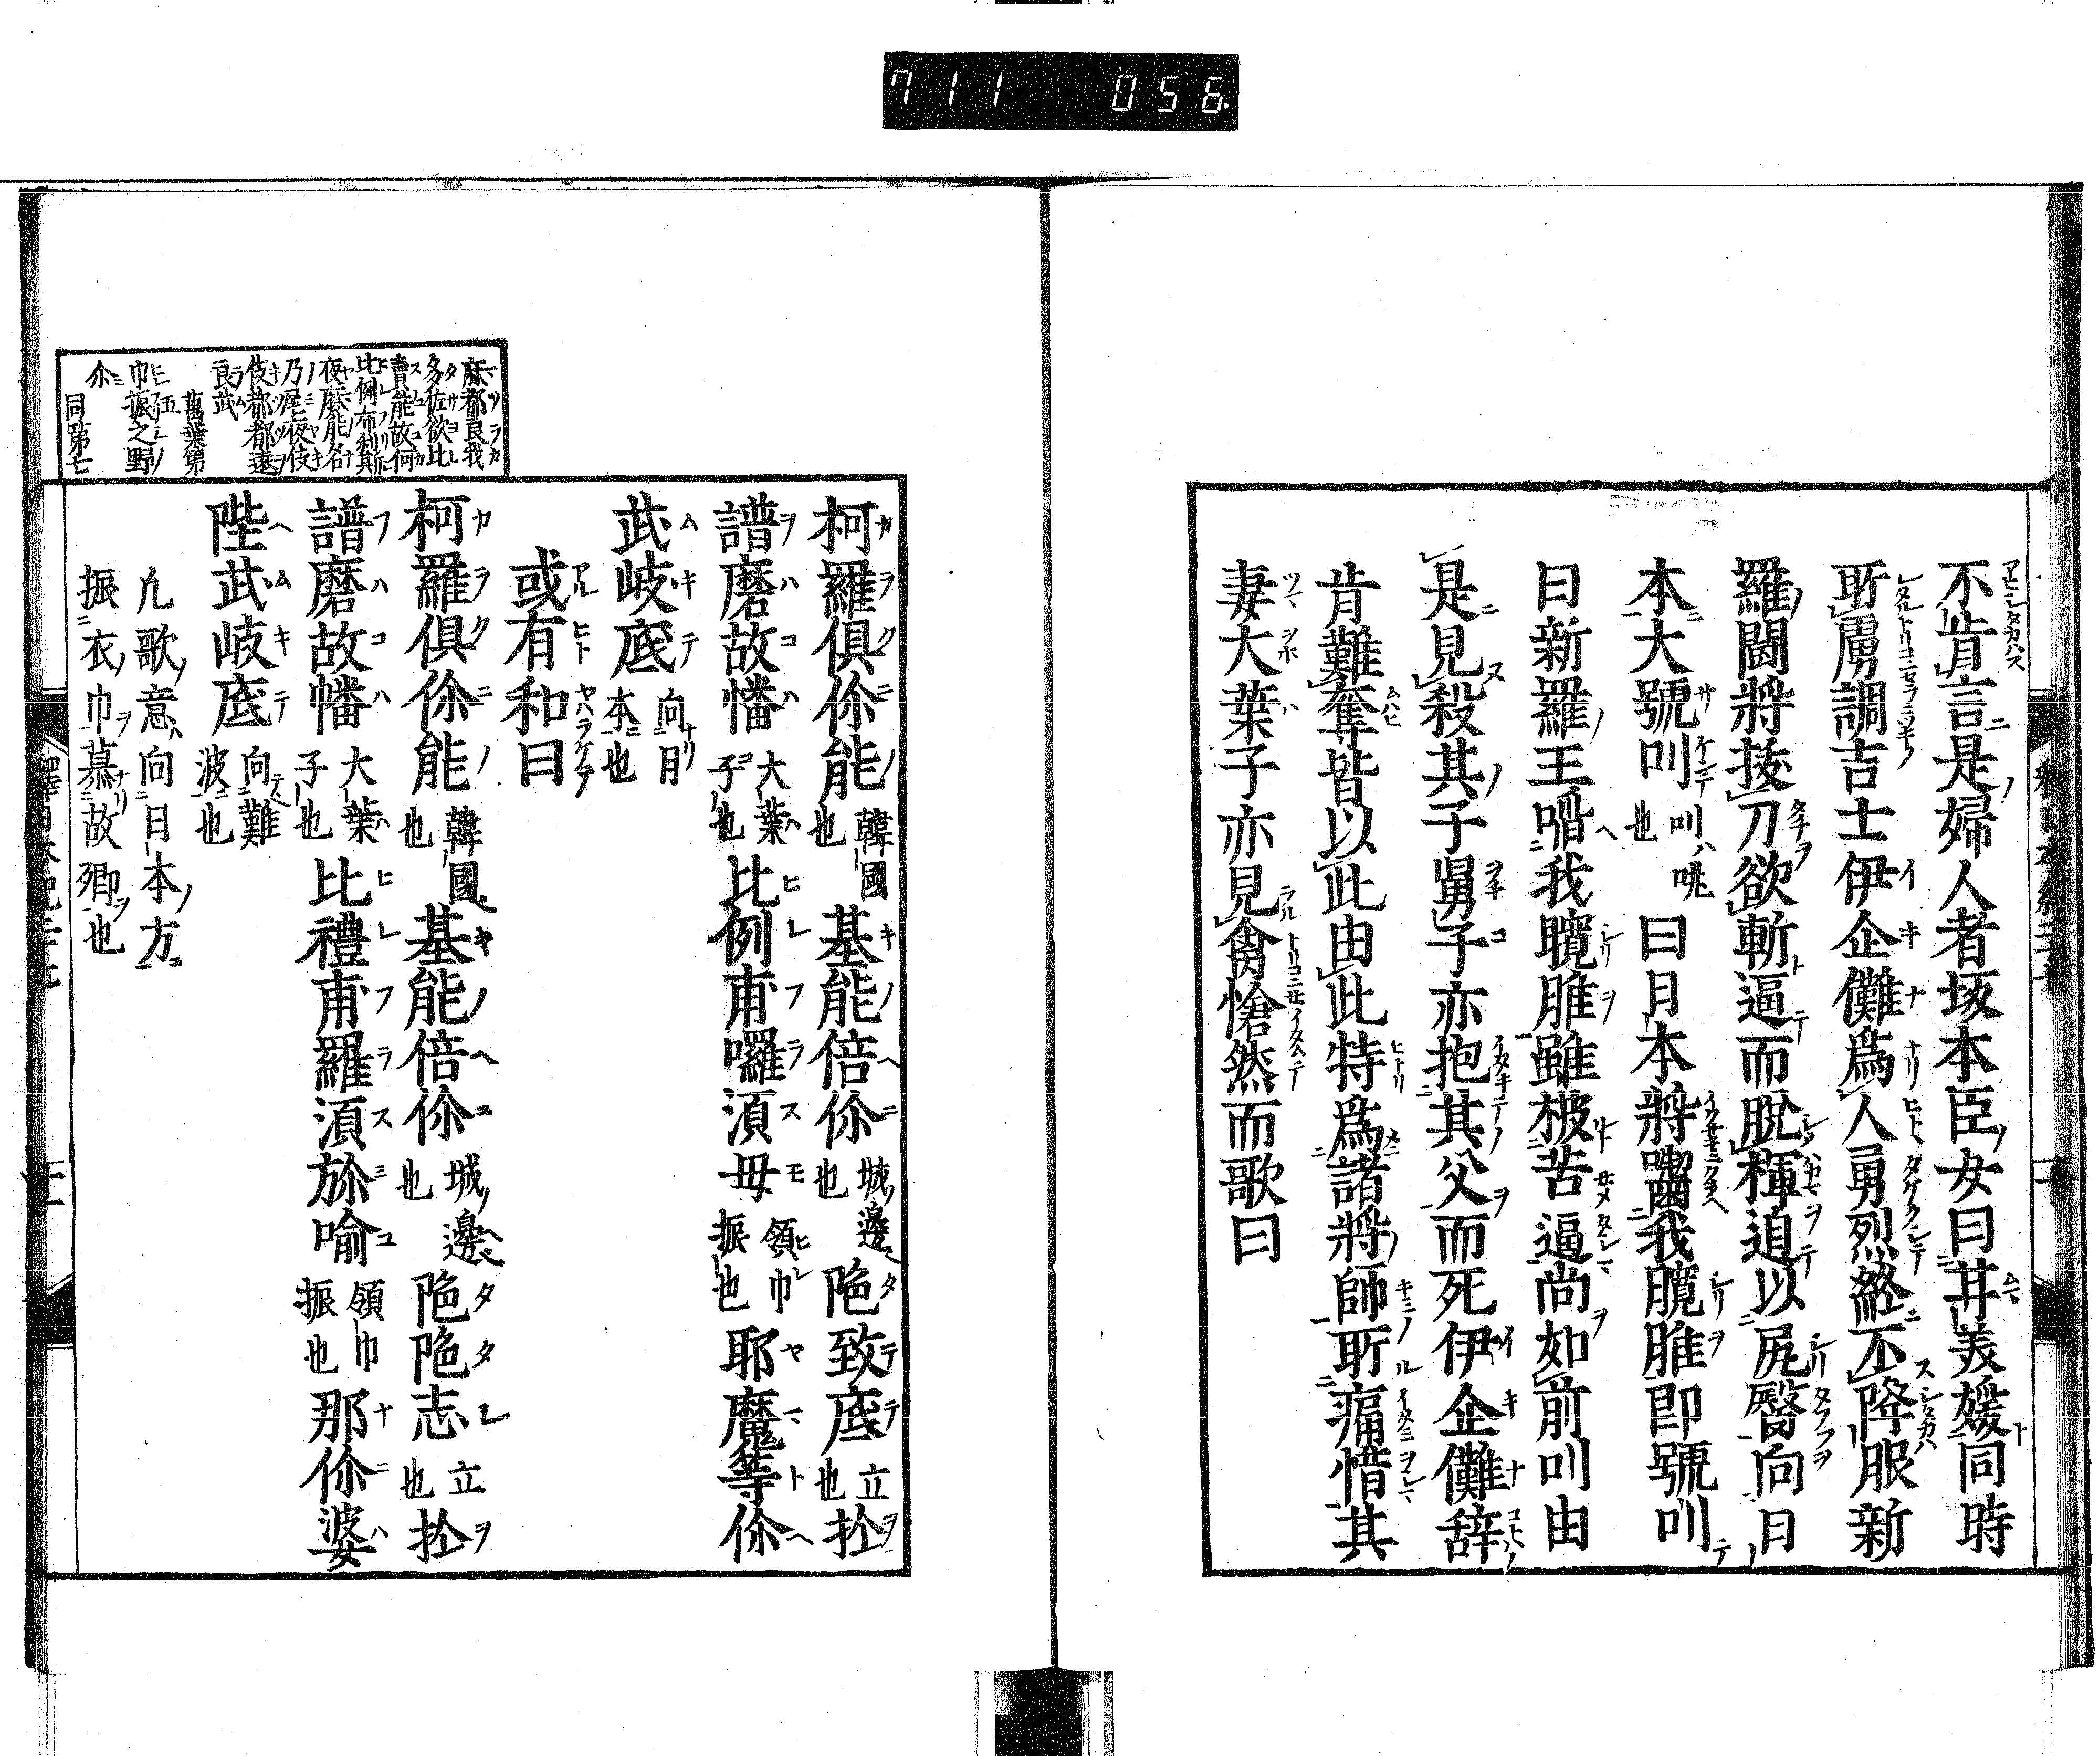 711 056
不肯言是婦人者坂本臣女曰甘美媛同時
所虜調吉士伊企儺為人勇烈終不降服新
羅闘将抜刀欲斬逼而脱褌追以尻臀向日
本大號叫叫咷也曰日本将噛我臗脽即號叫
曰新羅王㗖我臗脽雖被苦逼尚如前叫由
是見殺其子舅子亦抱其父而死伊企儺辞
旨難奪皆以此由此特為諸将師所痛惜其
妻大葉子亦見禽愴然而歌曰
麻都良我
多佐欲比
賣能故何
比例布利斯
夜麼能名
乃尾夜伎
伎都都遠
良武
萬葉第五
巾振之野
尒
同第七
柯羅倶伱能韓國也基能倍伱城邊也陁致底立也於
譜磨故幡大葉子也比例甫囉須毋領巾振也耶魔等伱
武岐底向日本也
或有和曰
柯羅倶伱能韓國也基能倍伱城邊也陁陁志立也於
譜磨故幡大葉子也比禮甫羅須弥喩領巾振也那伱婆
陛武岐底向難波也
凢歌意向日本方
振衣巾慕故郷也